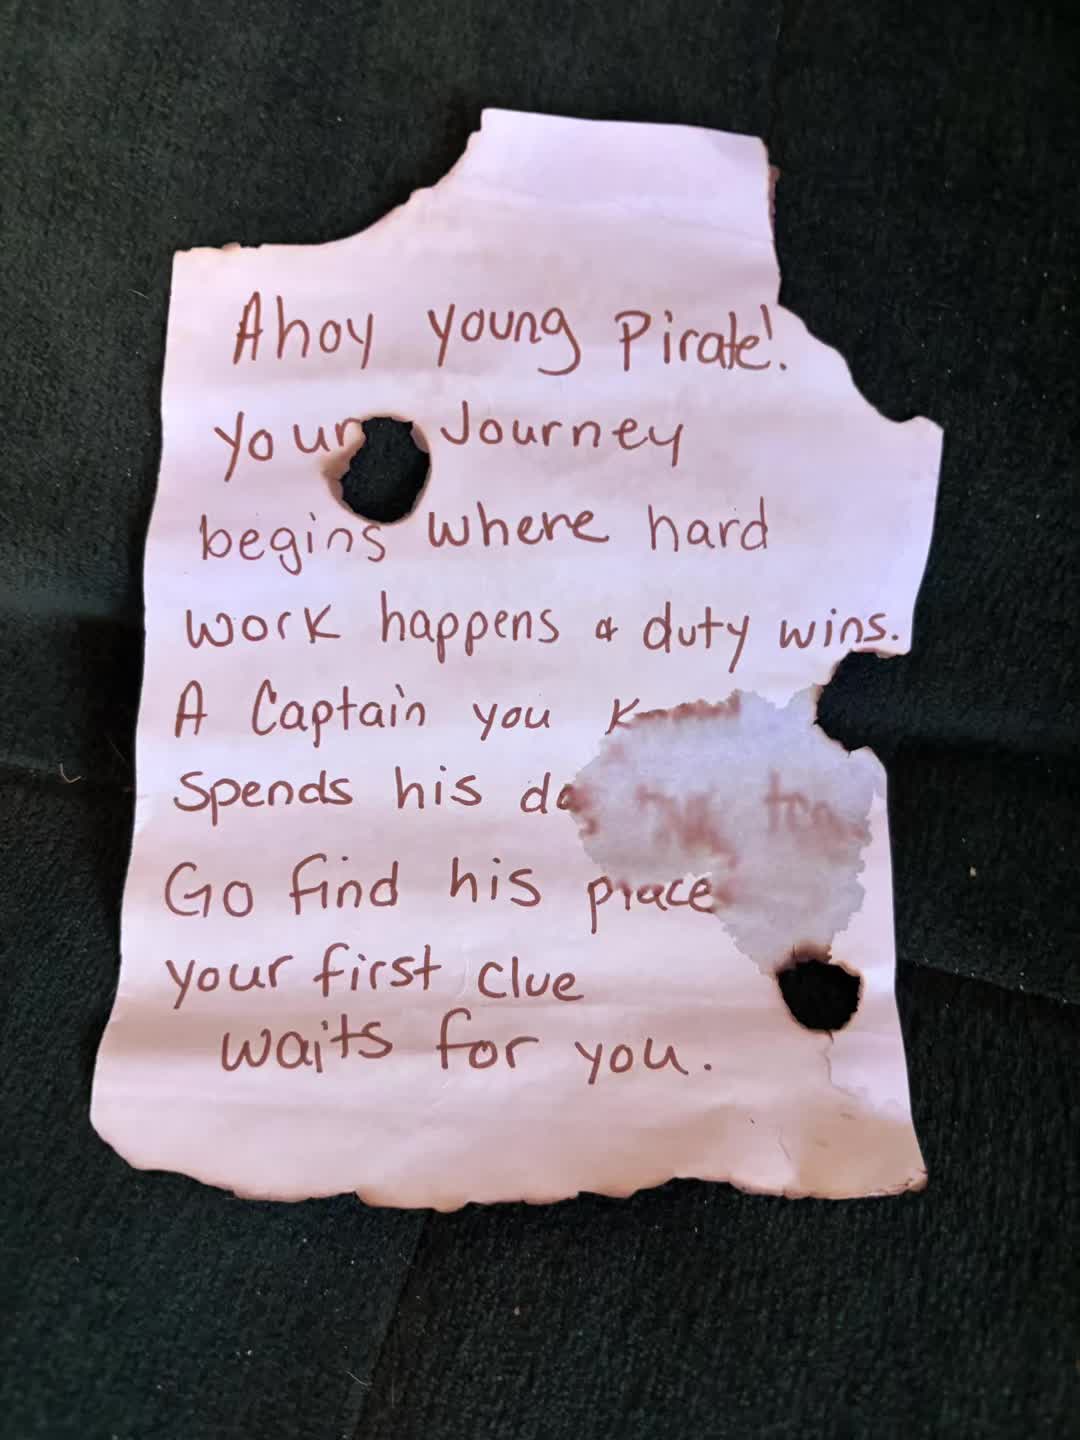 Ahoy young Pirate!
your Journey
begins where hard
work happens & duty wins.
A Captain you
Spends his
Go find his place
your first clue
waits for you.